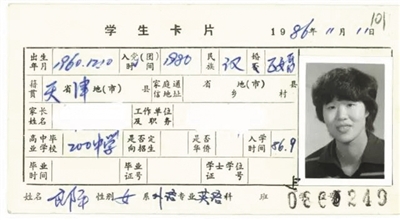 101
学生卡片 1986年11月11日
出生年月 1960.12.10 入党(团)时间 1980 民族 汉 婚 已婚
籍贯 天津 省 地(市) 县 家庭通信地址 省 地(市) 县 乡 村
家长姓名 工作单位及职务
高中毕业学校 200中学 是否定向招生 是否华侨 入学时间 86.9
毕业时间 毕业证号 学士学位证号
姓名 郎平 性别 女 系 外语 专业 英语 科 班 0660249